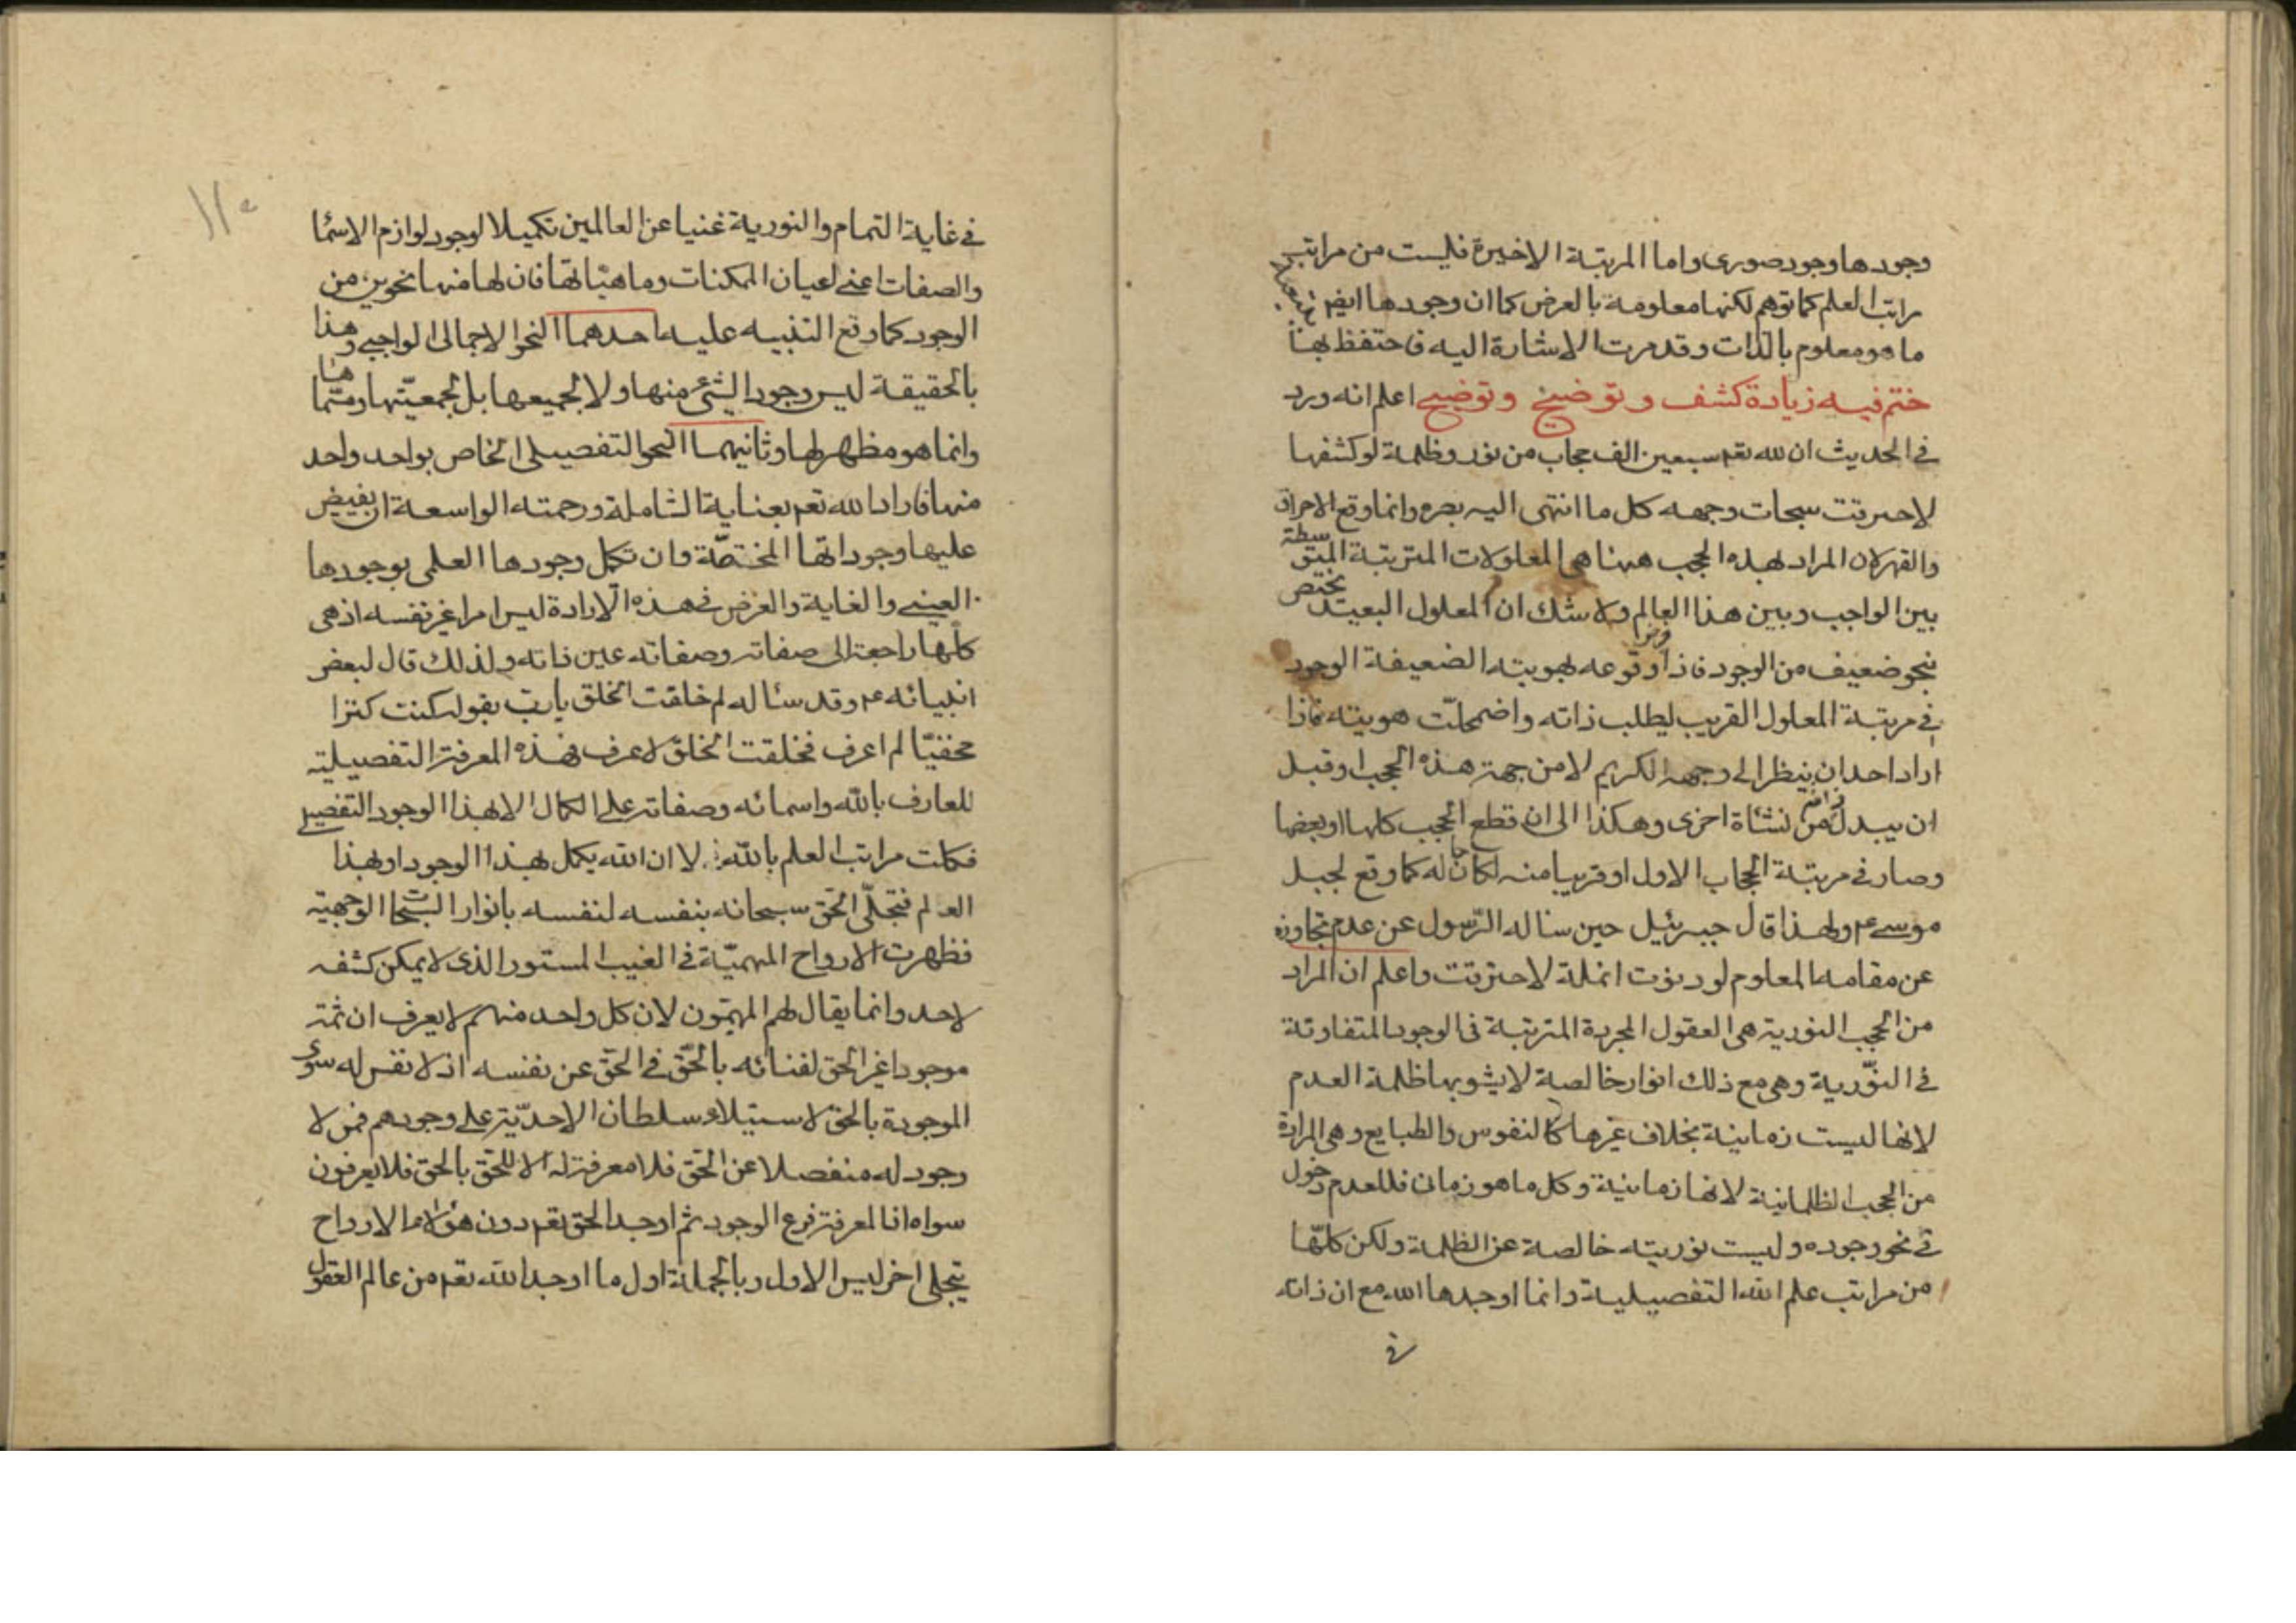 وجودها وجود صوری واما المرتبة الاخيرة فليست من مراتب
مراتب العلم كما توهم لكنها معلومة بالعرض كما ان وجودها ايضا
ما هو معلوم بالذات وقد مرت الاشارة اليه فاحتفظ بهذا
ختم فيه زيادة كشف و توضيح و توضيح اعلم انه ورد
فى الحديث ان لله تعم سبعين الف حجاب من نور وظلمة لو كشفها
لاحترقت سبحات وجهه كل ما انتهى اليه بصره وانما وقع الاحراق
والقهر لان المراد بهذه الحجب ههنا هى المعلولات المترتبة المتوسطة
بين الواجب وبين هذا العالم ولا شك ان المعلول البعيد يختص
بنحو ضعيف من الوجود فاذا وقوعه بهويته الضعيفة الوجود
فى مرتبة المعلول القريب ليطلب ذاته واضمحلّت هويته فاذا
اراد احد ان ينظر الى وجهه الكريم لا من جهة هذه الحجب او قبل
ان يبدل من نشئاة اخرى وهكذا الى ان قطع الحجب كلها او بعضها
وصار فى مرتبة الحجاب الاول او قريبا منه لكان له كما وقع لجبل
موسى ع ولهذا قال جبرئيل حين سئاله الرّسول عن عدم تجاوزه
عن مقامه المعلوم لو دنوت انملة لاحترقت واعلم ان المراد
من الحجب النورية هى العقول المجردة المترتبة فى الوجود المتفاوتة
فى النوّرية وهى مع ذلك انوار خالصة لا يشوبها ظلمة العدم
لانها ليست زمانية بخلاف غيرها كالنفوس والطبايع وهى المرادة
من الحجب الظلمانية لانها زمانية وكل ما هو زمان فللعدم دخول
فى نحو وجوده وليست نوريته خالصة عن الظلمة ولكن كلّها
من مراتب علم الله التفصيلية وانما اوجدها الله مع ان ذاته
فى
فى غاية التمام والنورية غنيا عن العالمين تكميلا لوجود لوازم الاسما
والصفات اعنى اعيان الممكنات وماهيّاتها فان لها منها نحوين من
الوجود كما وقع التنبيه عليه احدهما النحو الاجمالى الواجبى وهذا
بالحقيقة ليس وجود الشئ منها ولا لجميعها بل لجمعيّتها
وانما هو مظهر لها وثانيهما النحو التفصيلى الخاص بواحد واحد
منها فاراد الله تعم بعناية الشاملة ورحمته الواسعة ان يفيض
عليها وجوداتها المختصّة وان تكمل وجودها العلمى بوجودها
العينى والغاية والغرض فى هذه الارادة ليس امرا غير نفسه اذ هى
كلّها راجعة الى صفاته وصفاته عين ذاته ولذلك قال لبعض
انبيائه ع وقد سئاله لم خلقت الخلق يا ربّ بقوله كنت كنزا
مخفيّا لم اعرف فخلقت الخلق لاعرف فهذه المعرفة التفصيلية
للعارف بالله واسمائه وصفاته على الكمال الا بهذا الوجود التفصيلى
فكملت مراتب العلم بالله لا ان الله يكمل بهذا الوجود او بهذا
العالم فتجلّى الحق سبحانه بنفسه لنفسه بانوار السّبحات الوجهية
فظهرت الارواح المهيميّة فى الغيب المستور الذى لا يمكن كشفه
لاحد وانما يقال لهم المهيّمون لان كل واحد منهم لا يعرف ان ثمّة
موجودا غير الحق لفنائه بالحّق فى الحّق عن نفسه اذ لا نفس له سوى
الموجودة بالحق لاستيلاء سلطان الاحديّة على وجودهم فمن لا
وجود له منفصلا عن الحّق فلا معرفة له الا للحّق بالحق فلا يعرفون
سواه اذ المعرفة فرع الوجود ثم اوجد الحق تعم دون هؤلاء الارواح
يتجلى اخر ليس الاول وبالجملة اول ما اوجد الله تعم من عالم العقول